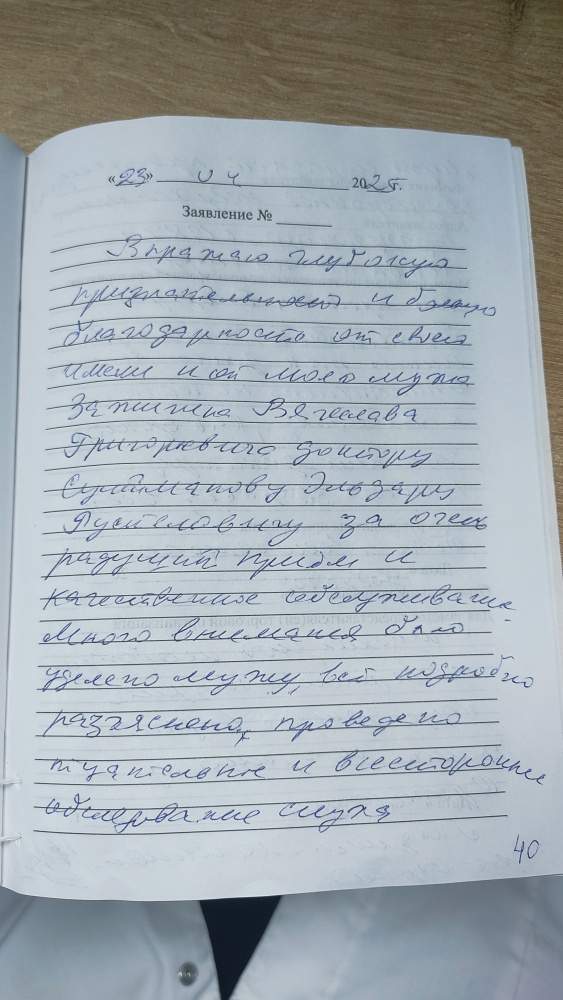 «23» 04 2025г.
Заявление №
Выражаю глубокую
признательность и большую
благодарность от своего
имени и от моего мужа
Вячеслава
Григорьевича доктору
Сулейманову Эльдару
за очень
радушный приём и
качественное обслуживание.
Много внимания было
уделено мужу, всё подробно
разъяснено, проведено
тщательное и всестороннее
обследование слуха
40